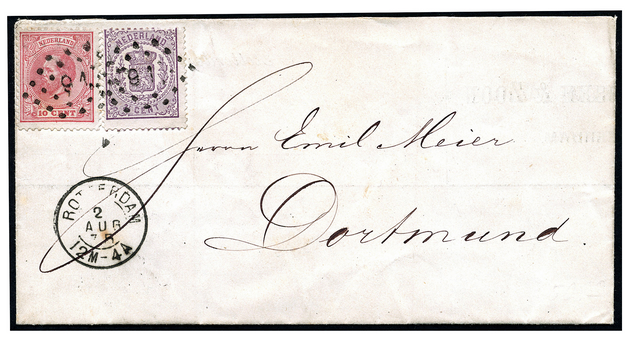 NEDERLAND
10 CENT
NEDERLAND
91
Herrn Emil Meier
Dortmund.
ROTTERDAM
2
AUG
12M-4A